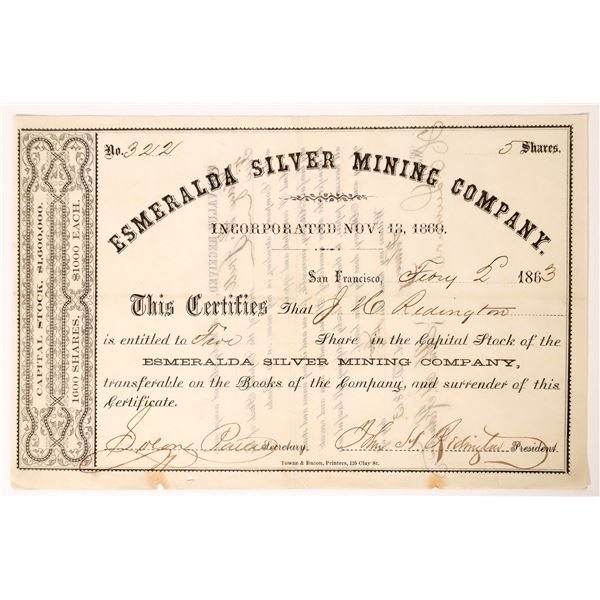 No. 322
5 Shares.
ESMERALDA SILVER MINING COMPANY.
INCORPORATED NOV. 13, 1860.
San Francisco, 1863
This Certifies That J H Redington
is entitled to Five Share in the Capital Stock of the
ESMERALDA SILVER MINING COMPANY,
transferable on the Books of the Company, and surrender of this
Certificate.
Secretary. John H. Redington President.
Towne & Bacon, Printers, 125 Clay St.
CAPITAL STOCK, $1,600,000.
1600 SHARES. $1000 EACH.